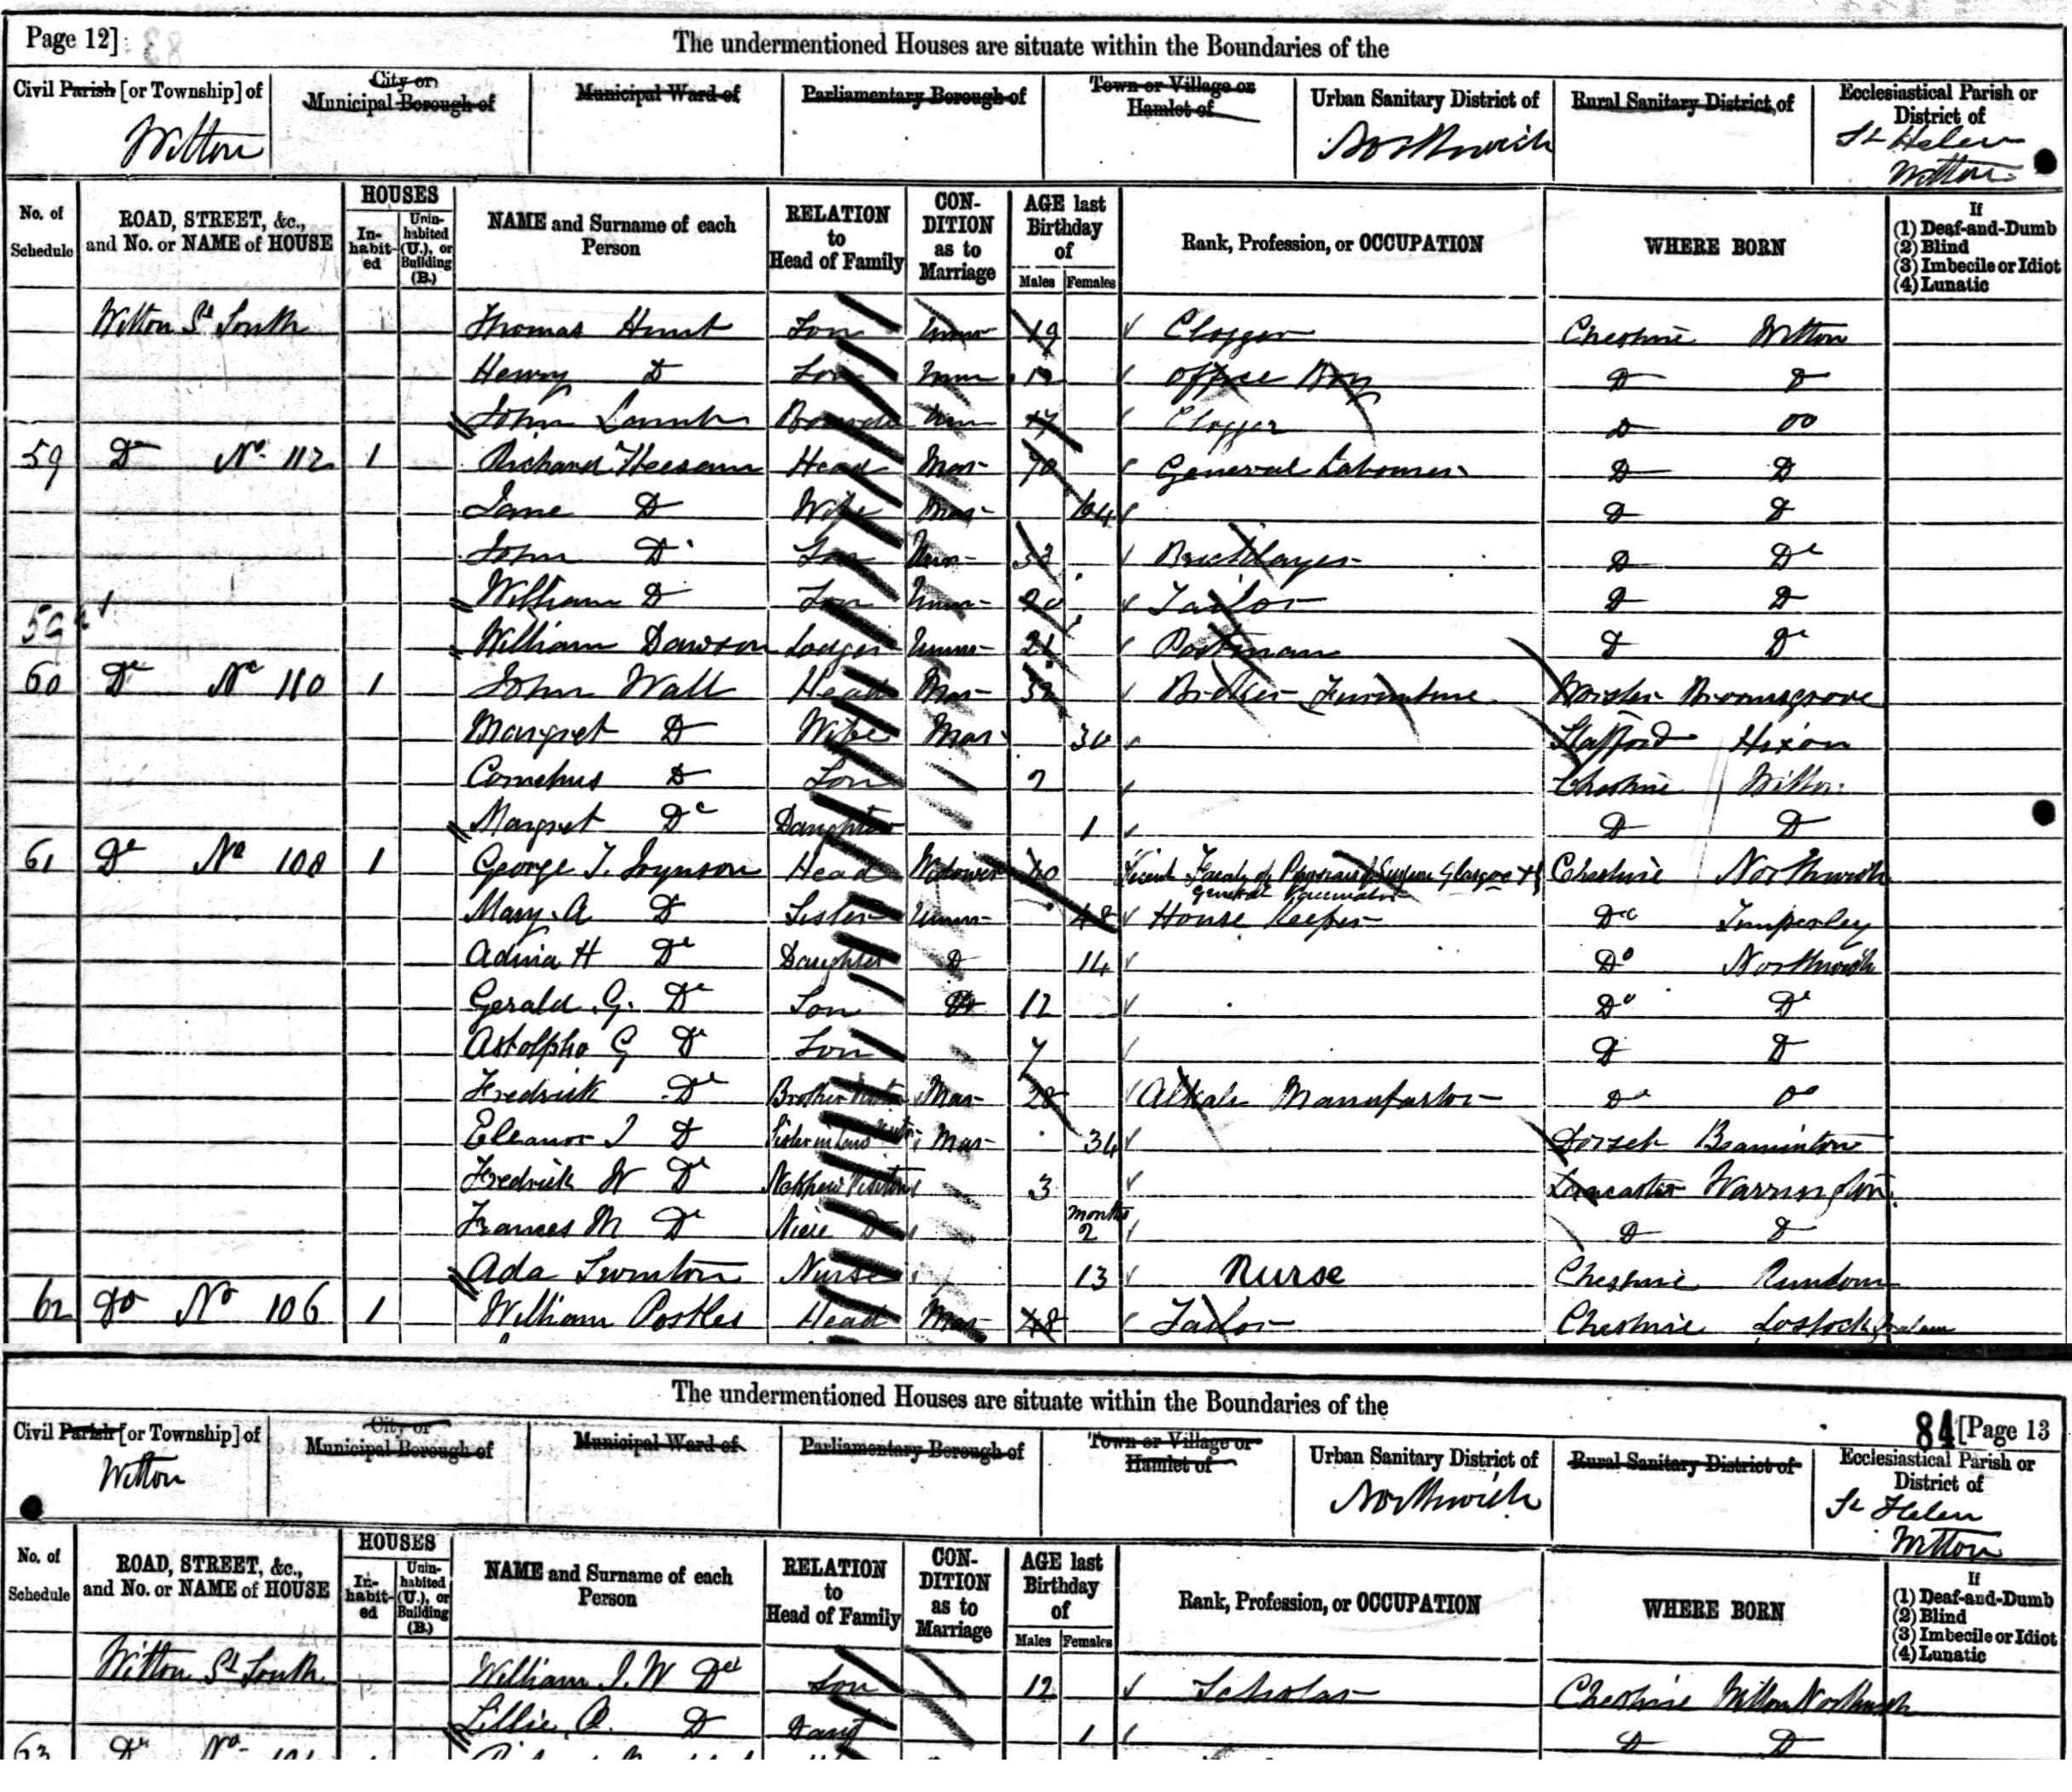 Page 12]
The undermentioned Houses are situate within the Boundaries of the
Civil Parish [or Township] of
Witton
City or Municipal Borough of
Municipal Ward of
Parliamentary Borough of
Town or Village or Hamlet of
Urban Sanitary District of
Northwich
Rural Sanitary District of
Ecclesiastical Parish or District of
St Helen Witton
No. of Schedule
ROAD, STREET, &c., and No. or NAME of HOUSE
HOUSES
In-habit-ed
Unin-habited (U.), or Building (B.)
NAME and Surname of each Person
RELATION to Head of Family
CON-DITION as to Marriage
AGE last Birthday of
Males
Females
Rank, Profession, or OCCUPATION
WHERE BORN
If (1) Deaf-and-Dumb (2) Blind (3) Imbecile or Idiot (4) Lunatic
Witton St South Thomas Hunt Son Unmar 19 Clogger Cheshire Witton
Henry D Son Unm Office Boy D D
John Lamb Unm 17 Clogger D Do
59 D No 112 1 Richard Heesam Head Mar 70 General Labourer D D
Jane D Wife Mar 64 D D
John D Son Unm Bricklayer D Do
William D Son Unm 20 Tailor D D
William Dawson Lodger Unm 21 Postman D Do
60 Do No 110 1 John Wall Head Mar Broker Furniture Worster Bromsgrove
Margret D Wife Mar 30 Stafford Hixon
Cornelius D Son 2 Cheshire Witton
Margret Do Daughter 1 D D
61 Do No 108 1 George T. Joynson Head Widower 40 Glasgow Cheshire Northwich
Mary A D Sister Unm 48 House Keeper Do Timperley
Adina H Do Daughter D 14 Do Northwich
Gerald G. Do Son Do 12 Do Do
Astolpho G Do Son 7 D D
Fredrick Do Brother Visitor Mar 28 Alkali Manufactor Do Do
Eleanor J D Sister in Law Visitor Mar 34 Dorset Beaminton
Fredrick W Do Nephew Visitor 3 Lancaster Warrington
Frances M Do Niece D months 2 D D
Ada Swinton Nurse 13 Nurse Cheshire Runcorn
62 Do No 106 1 William Postles Head Mar 48 Tailor Cheshire Lostock Gralam
The undermentioned Houses are situate within the Boundaries of the
84 [Page 13
Civil Parish [or Township] of
Witton
City or Municipal Borough of
Municipal Ward of
Parliamentary Borough of
Town or Village or Hamlet of
Urban Sanitary District of
Northwich
Rural Sanitary District of
Ecclesiastical Parish or District of
St Helen Witton
No. of Schedule
ROAD, STREET, &c., and No. or NAME of HOUSE
HOUSES
In-habit-ed
Unin-habited (U.), or Building (B.)
NAME and Surname of each Person
RELATION to Head of Family
CON-DITION as to Marriage
AGE last Birthday of
Males
Females
Rank, Profession, or OCCUPATION
WHERE BORN
If (1) Deaf-and-Dumb (2) Blind (3) Imbecile or Idiot (4) Lunatic
Witton St South William J. W Do Son 12 Scholar Cheshire Witton Northwich
Lillie A. D Daugt 1 D D